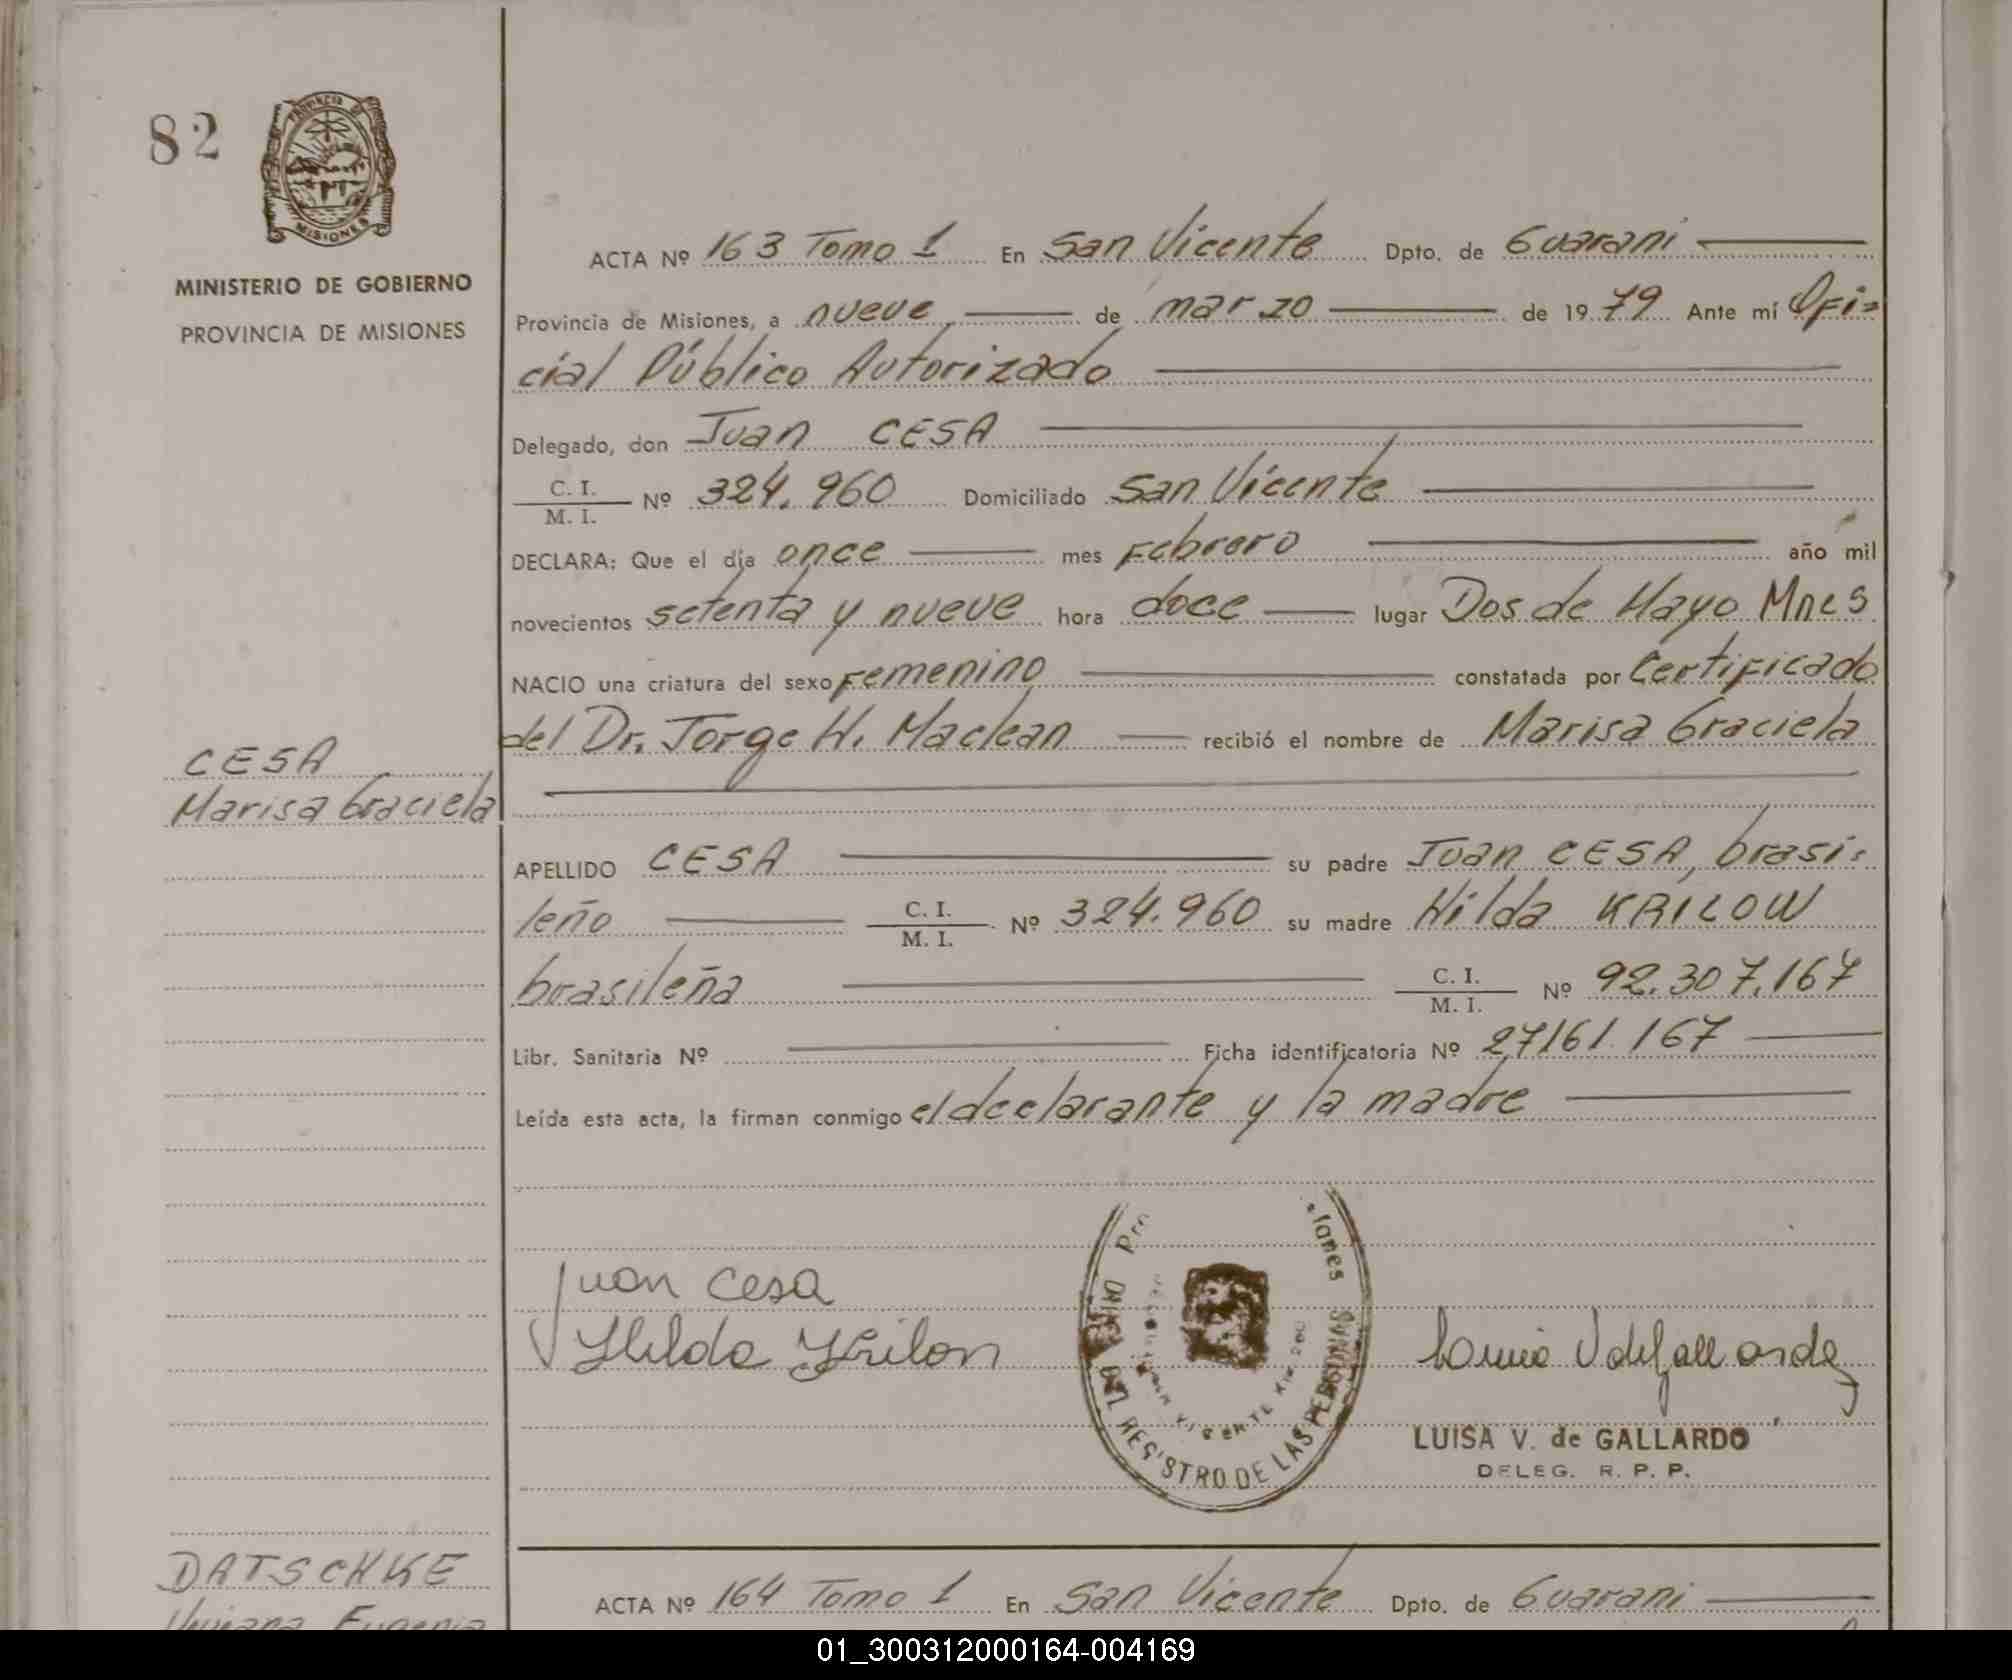 82
PROVINCIA DE
MISIONES
MINISTERIO DE GOBIERNO
PROVINCIA DE MISIONES
ACTA Nº 163 Tomo 1 En San Vicente Dpto. de Guarani
Provincia de Misiones, a nueve de marzo de 1979 Ante mí Ofi=
cial Público Autorizado
Delegado, don Juan CESA
C. I.
M. I. Nº 324.960 Domiciliado San Vicente
DECLARA: Que el día once mes Febrero año mil
novecientos setenta y nueve hora doce lugar Dos de Mayo Mnes
NACIO una criatura del sexo Femenino constatada por Certificado
del Dr. Jorge H. Maclean recibió el nombre de Marisa Graciela
CESA
Marisa Graciela
APELLIDO CESA su padre Juan CESA, brasi=
leño C. I.
M. I. Nº 324.960 su madre Hilda KRILOW
brasileña C. I.
M. I. Nº 92.307.167
Libr. Sanitaria Nº Ficha identificatoria Nº 27161.167
Leída esta acta, la firman conmigo el declarante y la madre
Juan Cesa
Hilda Krilon
DEL REGISTRO DE LAS PERSONAS
LUISA V. de GALLARDO
DELEG. R. P. P.
DATSCHKE
Viviana Eugenia
ACTA Nº 164 Tomo 1 En San Vicente Dpto. de Guarani
01_300312000164-004169